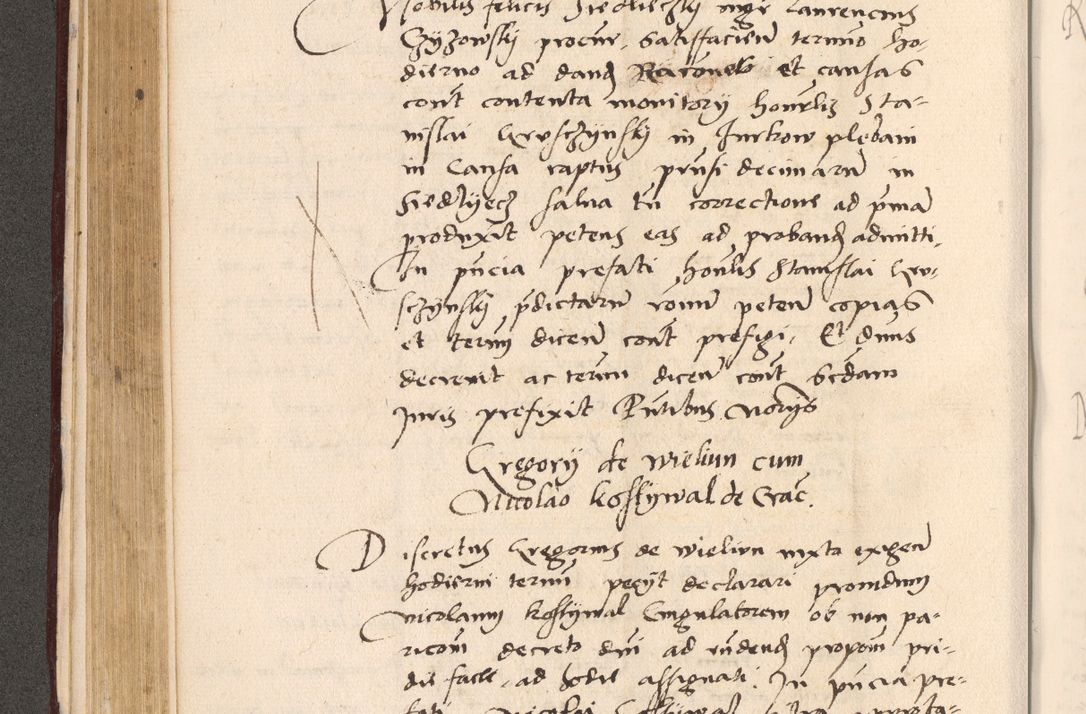 Nobilis felicis Siedlieczky mgr Laurencius
Czyzowsky procur. satisfacien termino ho-
dierno ad dand Racones et causas
cont contenta monitorÿ honrlis Sta-
nislai Groschynsky in Jurkow plebani
in Causa raptus prnsi decimarum in
Siedlyecz salua tn correctione ad pma
produxit petens eas ad proband admitti.
In pncia prefati honlis Stanislai Gro-
schynsky pdictarum roum peten copias
et termi dicen cont prefigi. Et dnus
decreuit ac termin dicen cont scdam
Juris prefixit Pntibus Norijs
Gregorÿ de Wieliun cum
Nicolao Kossÿwal de Crac.
Discretus Gregorius de Wieliun iuxta exigen
hodierni termi pecÿt declarari prouidum
Nicolaum Kossÿwal Cingulatorem ob non pa-
ricom decreto dni ad rndend propom pri-
die facte, ad hodie assignati. In pncia pre-
fati Nicolai Kossÿwal